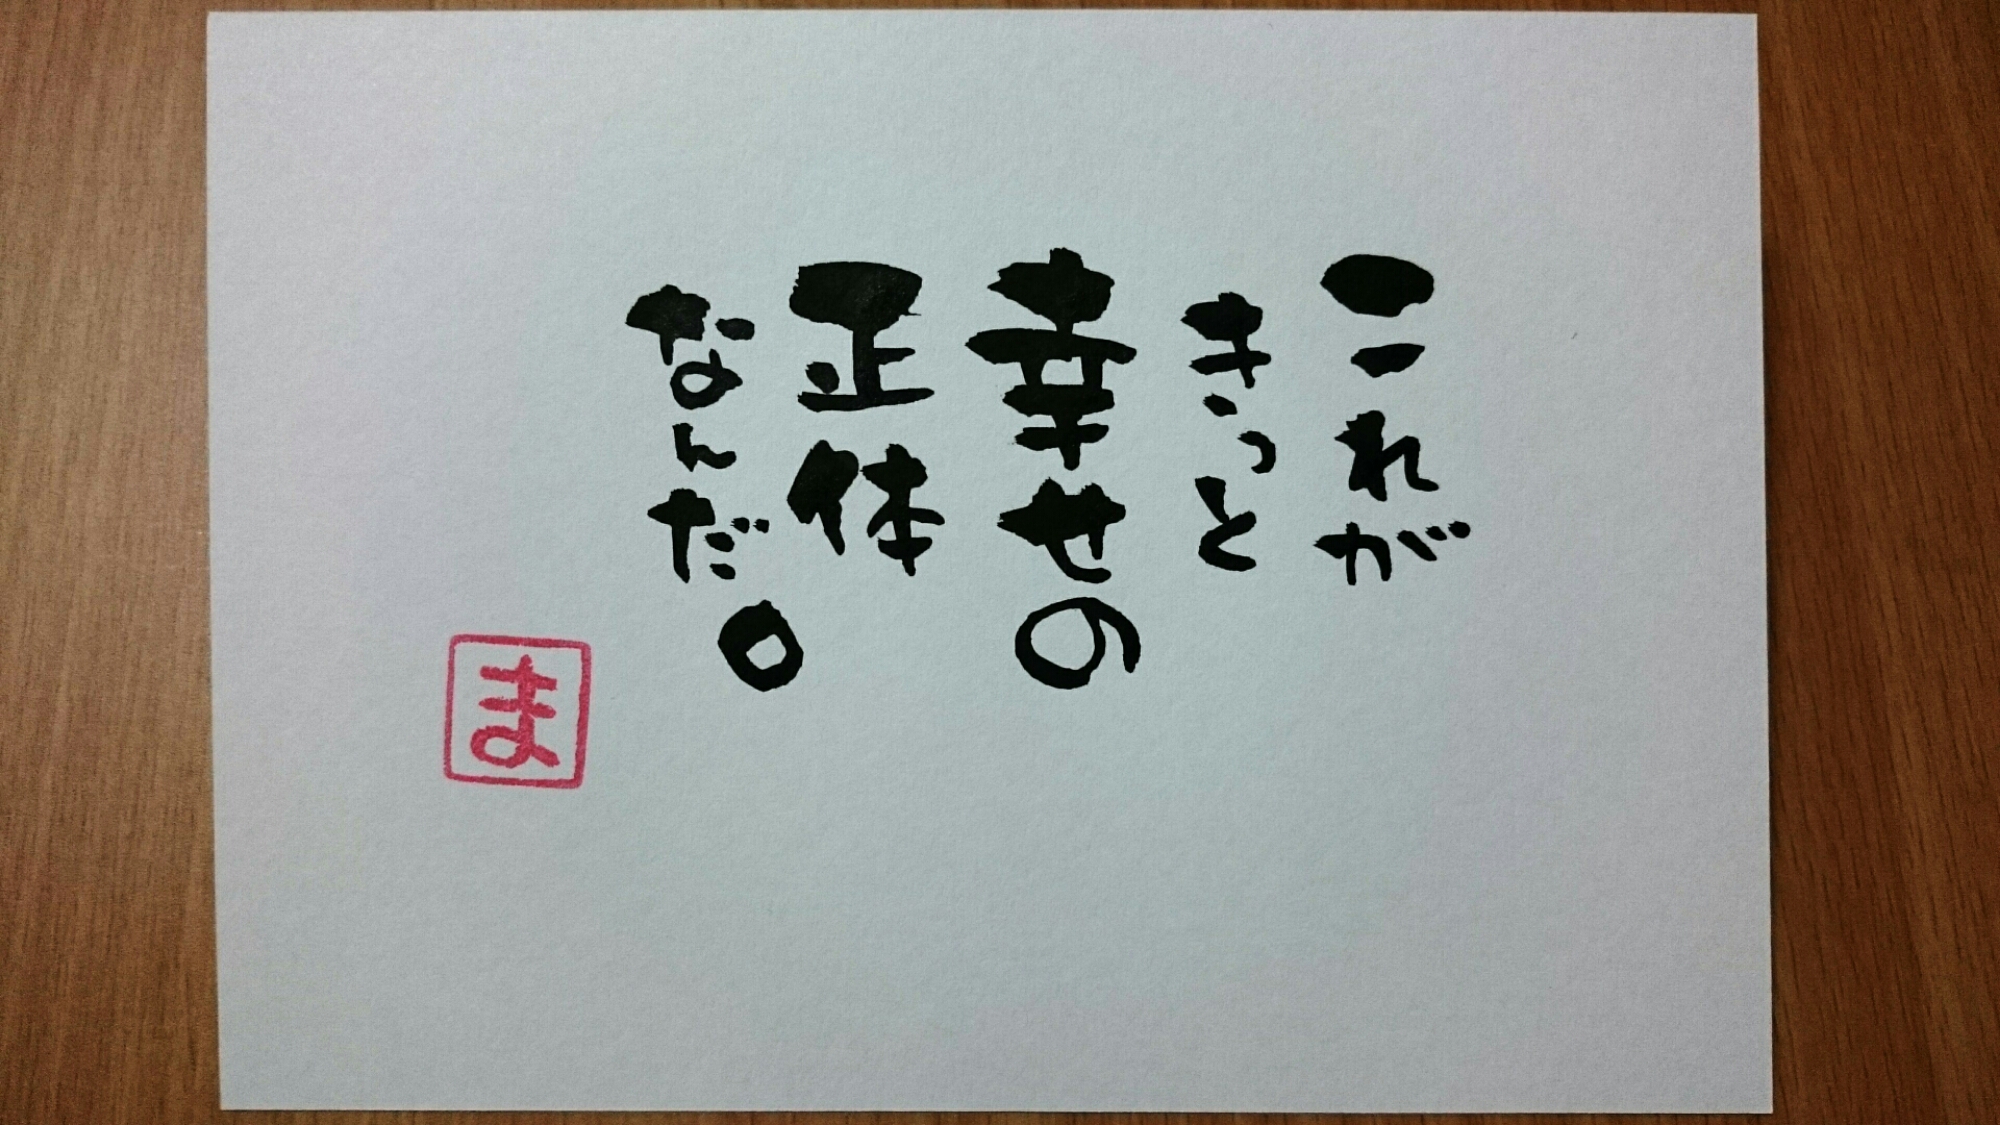 これが
きっと
幸せの
正体
なんだ。
ま